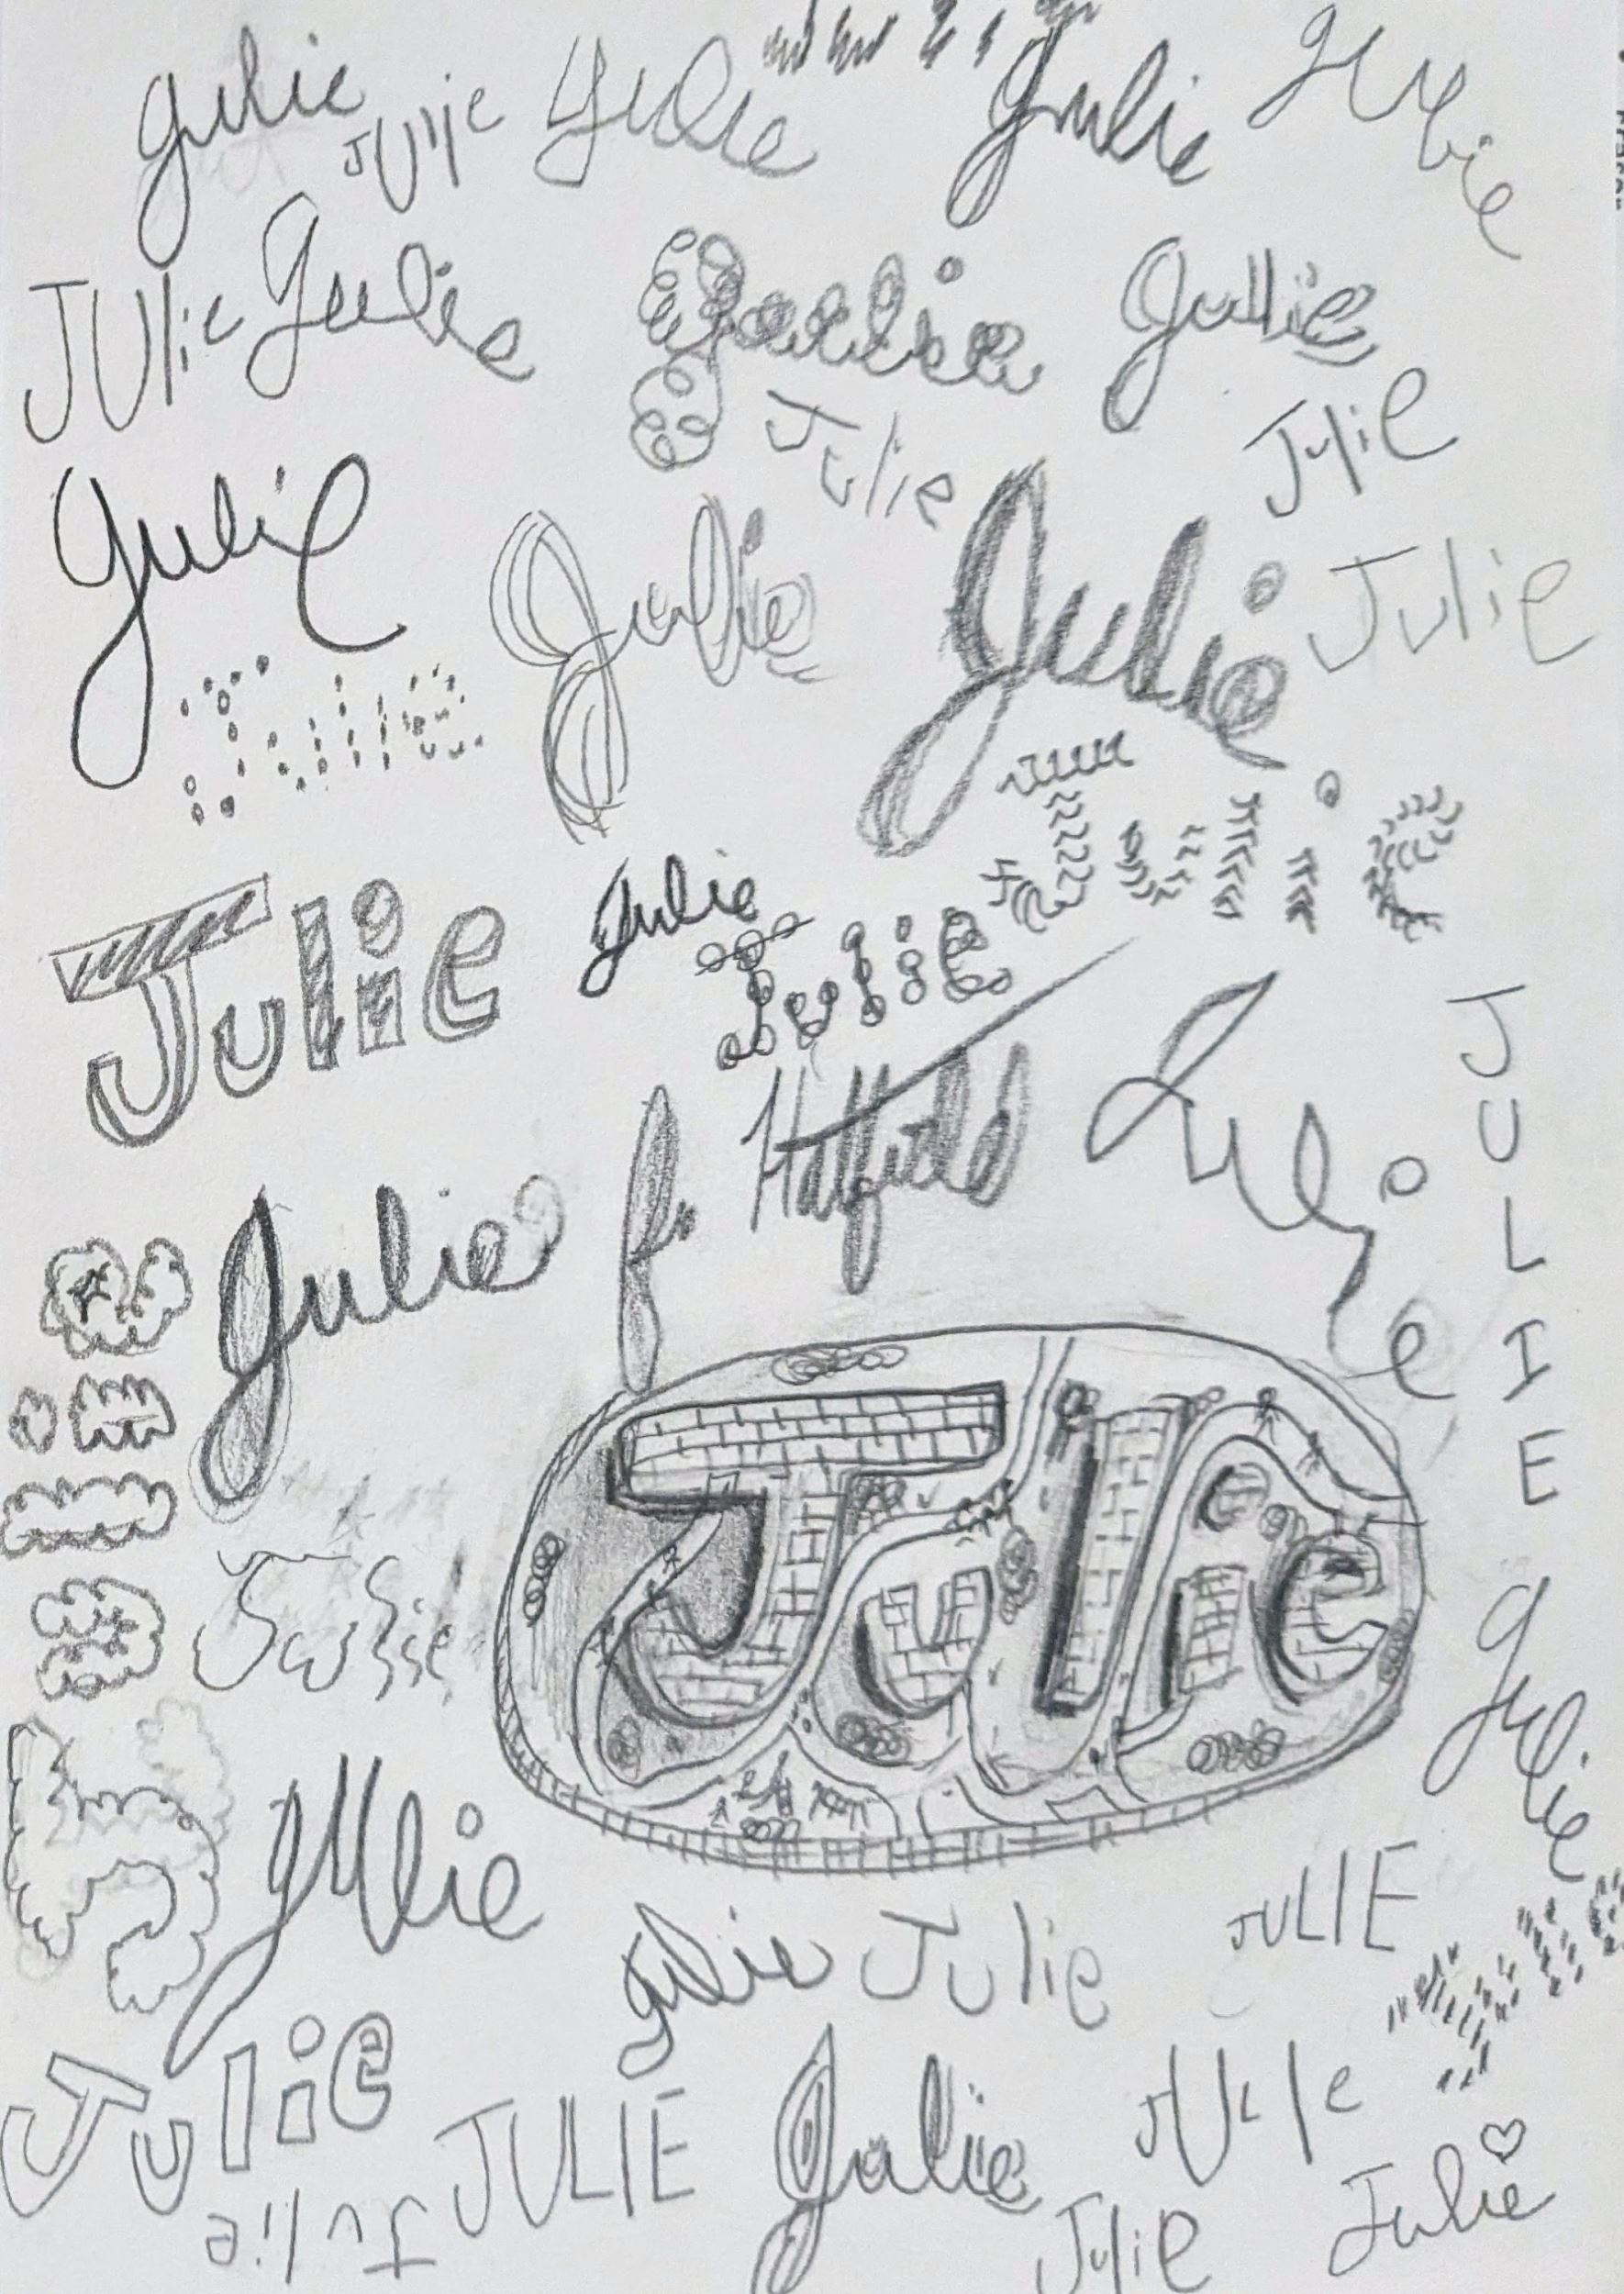 Julie Julie Julie Julie Julie
Julie Julie Julie Julie
Julie Julie
Julie Julie Julie Julie
Julie Julie
Julie Julie
Julie
JULIE
Hatfield Julie
Julie
Julie
Julie
Julie
Julie Julie
Julie Julie JULIE
Julie
Julie JULIE Julie Julie
Julie Julie Julie